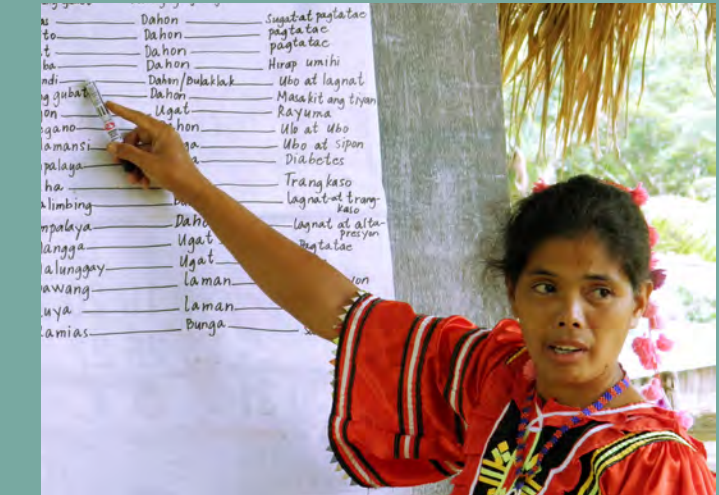 Dahon Sugat at pagtatae
to Dahon pagtatae
t Dahon pagtatae
ba Dahon Hirap umihi
ndi Dahon/Bulaklak Ubo at lagnat
g gubat Dahon Masakit ang tiyan
on Ugat Rayuma
gano hon Ulo at Ubo
lamansi ga Ubo at sipon
palaya Diabetes
ha Trangkaso
limbing Lagnat at trang-
kaso
mpalaya Daho Lagnat at alta-
presyon
angga Ugat Pagtatae
alunggay Ugat
awang Laman yon
uya Laman
amias Bunga